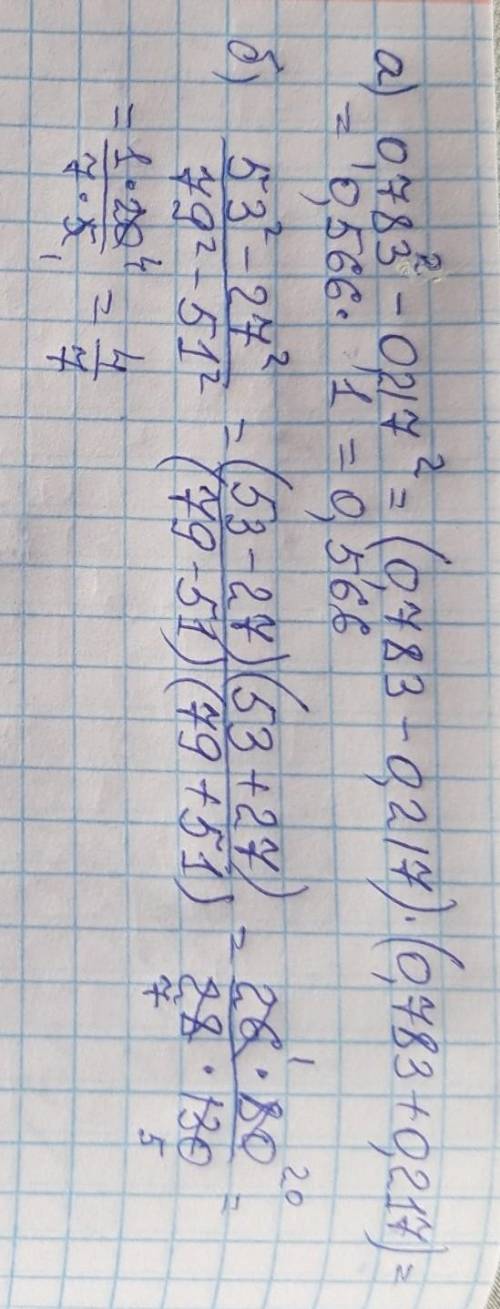 а) 0,783² - 0,217² = (0,783 - 0,217)·(0,783 + 0,217) =
= 0,566 · 1 = 0,566
б) (53² - 27²)/(79² - 51²) = ((53 - 27)(53 + 27))/((79 - 51)(79 + 51)) = (26 1 · 80 20)/(28 7 · 130 5) =
= (1 · 20 4)/(7 · 5 1) = 4/7